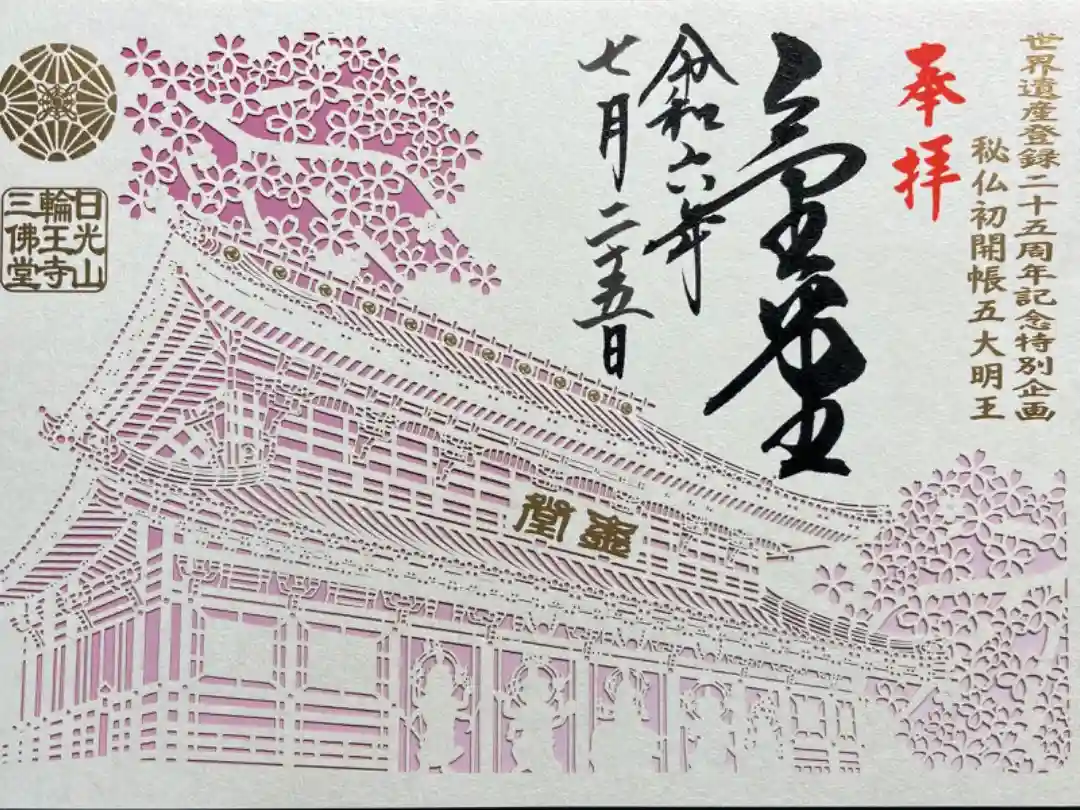 世界遺産登録二十五周年記念特別企画
秘仏初開帳五大明王
奉拝
金堂
令和六年
七月二十五日
日光山
輪王寺
三佛堂